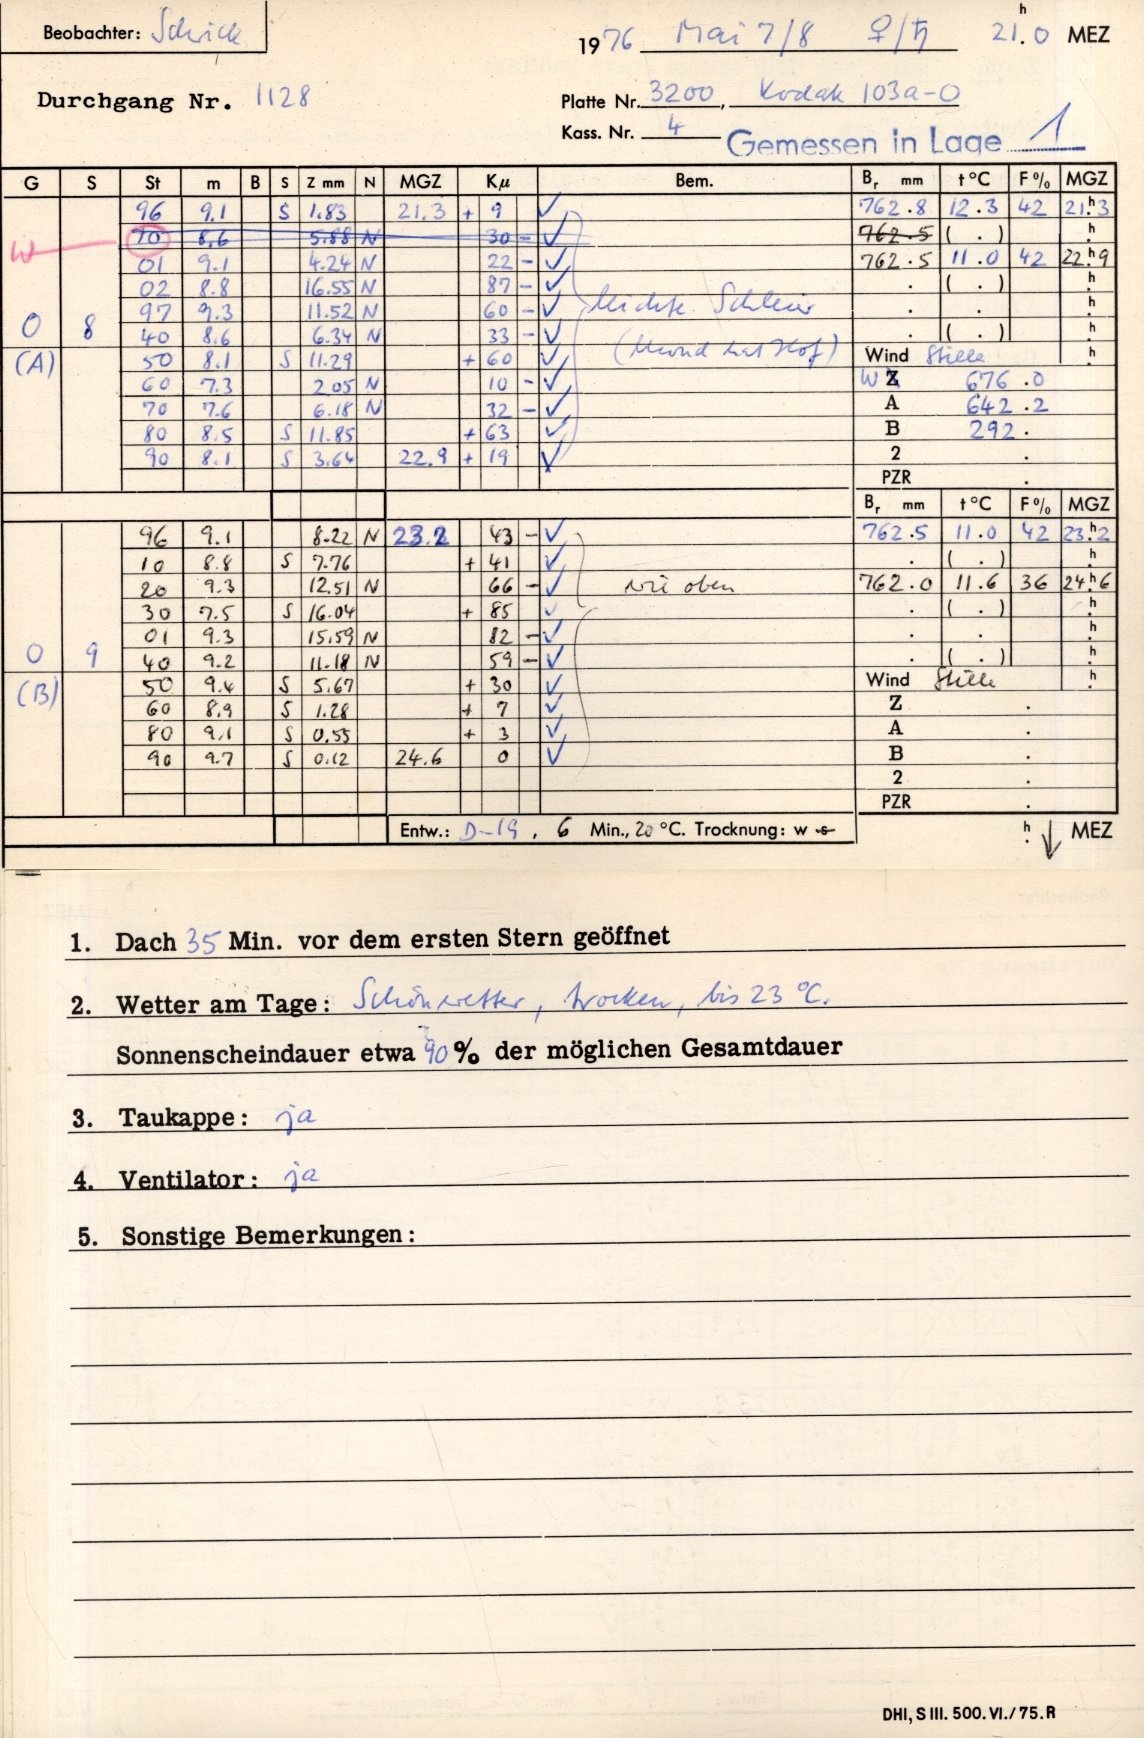 Beobachter: Schrick
1976 Mai 7/8 ♀/♄ 21.ʰ0 MEZ
Durchgang Nr. 1128
Platte Nr. 3200, Kodak 103a-O
Kass. Nr. 4 Gemessen in Lage 1
G S St m B S Z mm N MGZ Kμ Bem. Bᵣ mm t°C F% MGZ
96 9.1 S 1.83 21.3 + 9 ✓ 762.8 12.3 42 21.ʰ3
W 70 8.6 5.88 N 30 - ✓ 762.5 ( . ) ʰ.
01 9.1 4.24 N 22 - ✓ 762.5 11.0 42 22.ʰ9
02 8.8 16.55 N 87 - ✓ . ( . ) ʰ.
97 9.3 11.52 N 60 - ✓ leichte Schleier . . ʰ.
08 40 8.6 6.34 N 33 - ✓ (Mond hat Hof) . ( . ) ʰ.
(A) 50 8.1 S 11.29 + 60 ✓ Wind Stille ʰ.
60 7.3 2.05 N 10 - ✓ W Z 676.0
70 7.6 6.18 N 32 - ✓ A 642.2
80 8.5 S 11.85 + 63 ✓ B 292.
90 8.1 S 3.64 22.9 + 19 ✓ 2 .
PZR .
Bᵣ mm t°C F% MGZ
96 9.1 8.22 N 23.2 43 - ✓ 762.5 11.0 42 23.ʰ2
10 8.8 S 7.76 + 41 ✓ . ( . ) ʰ.
20 9.3 12.51 N 66 - ✓ wie oben 762.0 11.6 36 24.ʰ6
30 7.5 S 16.04 + 85 ✓ . ( . ) ʰ.
01 9.3 15.59 N 82 - ✓ . . ʰ.
09 40 9.2 11.18 N 59 - ✓ . ( . ) ʰ.
(B) 50 9.4 S 5.67 + 30 ✓ Wind Stille ʰ.
60 8.9 S 1.28 + 7 ✓ Z .
80 9.1 S 0.55 + 3 ✓ A .
90 9.7 S 0.12 24.6 0 ✓ B .
2 .
PZR .
Entw.: D-19, 6 Min., 20 °C. Trocknung: w s ʰ. ↓ MEZ
1. Dach 35 Min. vor dem ersten Stern geöffnet
2. Wetter am Tage: Schönwetter, trocken, bis 23 °C.
Sonnenscheindauer etwa 90% der möglichen Gesamtdauer
3. Taukappe: ja
4. Ventilator: ja
5. Sonstige Bemerkungen:
DHI, S III. 500. VI./75. R